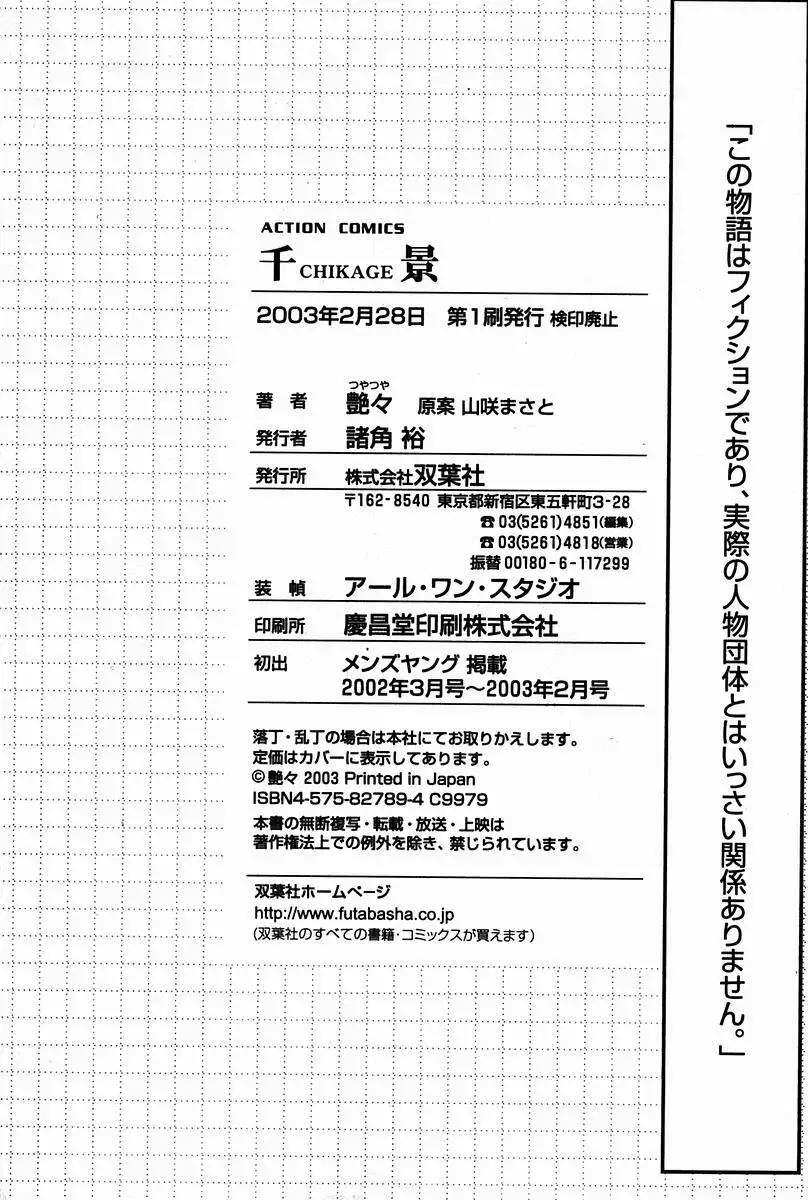 「この物語はフィクションであり、実際の人物団体とはいっさい関係ありません。」
ACTION COMICS
千 CHIKAGE 景
2003年2月28日 第1刷発行 検印廃止
つやつや
著者 艶々 原案 山咲まさと
発行者 諸角 裕
発行所 株式会社双葉社
〒162-8540 東京都新宿区東五軒町3-28
☎03(5261)4851(編集)
☎03(5261)4818(営業)
振替00180-6-117299
装幀 アール・ワン・スタジオ
印刷所 慶昌堂印刷株式会社
初出 メンズヤング 掲載
2002年3月号〜2003年2月号
落丁・乱丁の場合は本社にてお取りかえします。
定価はカバーに表示してあります。
©艶々 2003 Printed in Japan
ISBN4-575-82789-4 C9979
本書の無断複写・転載・放送・上映は
著作権法上での例外を除き、禁じられています。
双葉社ホームページ
http://www.futabasha.co.jp
(双葉社のすべての書籍・コミックスが買えます)